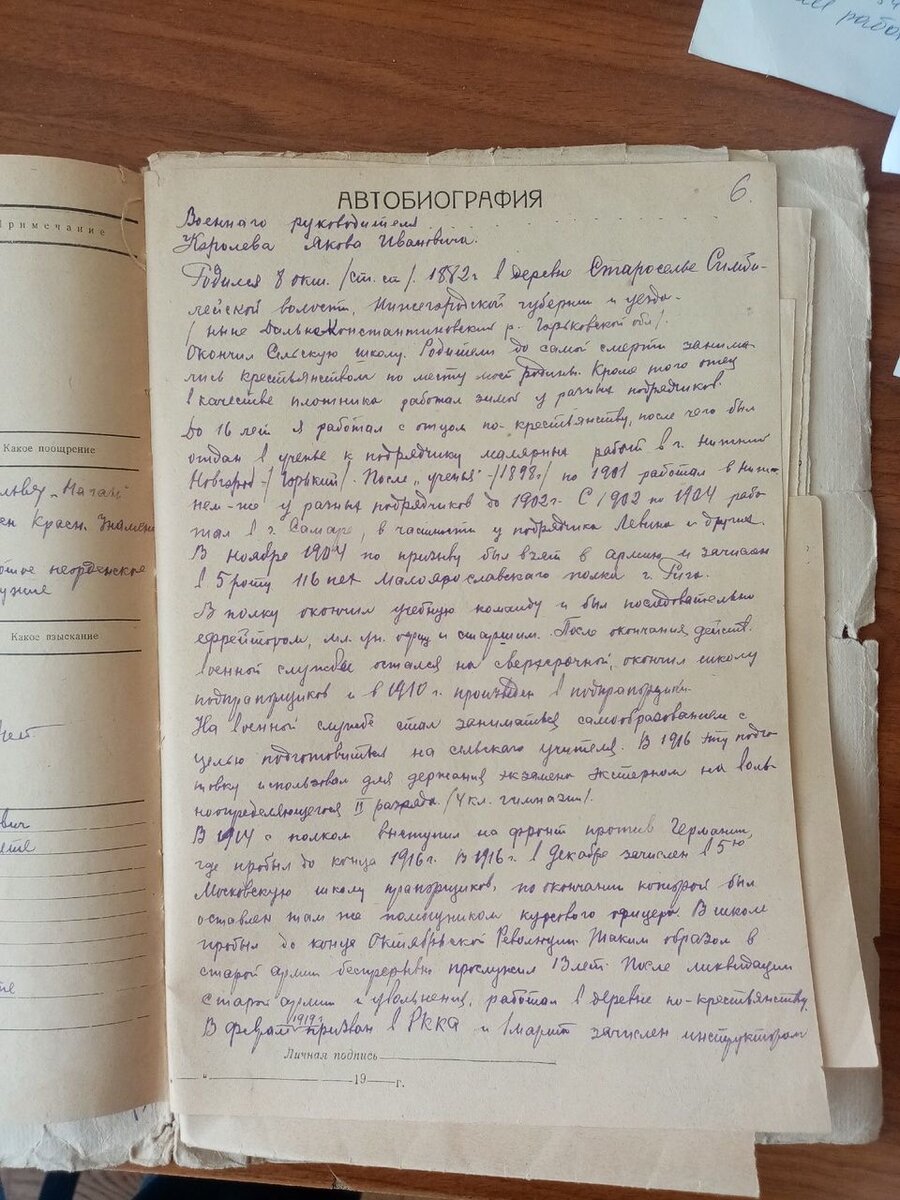 ам рабо
6.
АВТОБИОГРАФИЯ
Военного руководителя
Королева Якова Ивановича.
Родился 8 окт. /ст. ст/. 1882 г в деревне Староселье Симби-
лейской волости, Нижегородской губернии и уезда-
/ ныне Дальне Константиновский р. Горьковской обл/.
Окончил Сельскую школу. Родители до самой смерти занима-
лись крестьянством по месту моей родины. Кроме того отец
в качестве плотника работал зимой у разных подрядчиков.
До 16 лет я работал с отцом по-крестьянству, после чего был
отдан в ученье к подрядчику малярных работ в г. Нижний
Новгород-/Горький/. После „ученья" -/1898г/ по 1901 работал в Ниж-
нем-же у разных подрядчиков до 1902г. С 1902 по 1904 рабо-
тал в г. Самаре, в частности у подрядчика Левина и других.
В ноябре 1904 по призыву был взят в армию и зачислен
в 5 роту 116 пех Малоярославского полка г. Рига.
В полку окончил учебную команду и был последовательно
ефрейтором, мл. ун. офиц и старшим. После окончания действ.
военной службы остался на сверхсрочной, окончил школу
подпрапорщиков и в 1910 г. произведен в подпрапорщики.
На военной службе стал заниматься самообразованием с
целью подготовиться на сельского учителя. В 1916 эту подго-
товку использовал для держания экзамена экстерном на воль-
ноопределяющегося II разряда /4 кл. гимназии/.
В 1914 с полком выступил на фронт против Германии,
где пробыл до конца 1916 г. В 1916 г. в Декабре зачислен в 5ю
Московскую школу прапорщиков, по окончании которой был
оставлен там же помощником курсового офицера. В школе
пробыл до конца Октябрьской Революции. Таким образом в
старой армии беспрерывно прослужил 13 лет. После ликвидации
старой армии и увольнения, работал в деревне по-крестьянству.
В феврале 1919г призван в РККА и 1 марта зачислен инструктором
Личная подпись
19 г.
Примечание
Какое поощрение
„Наган"
Красн. Знамени
неорденское
Какое взыскание